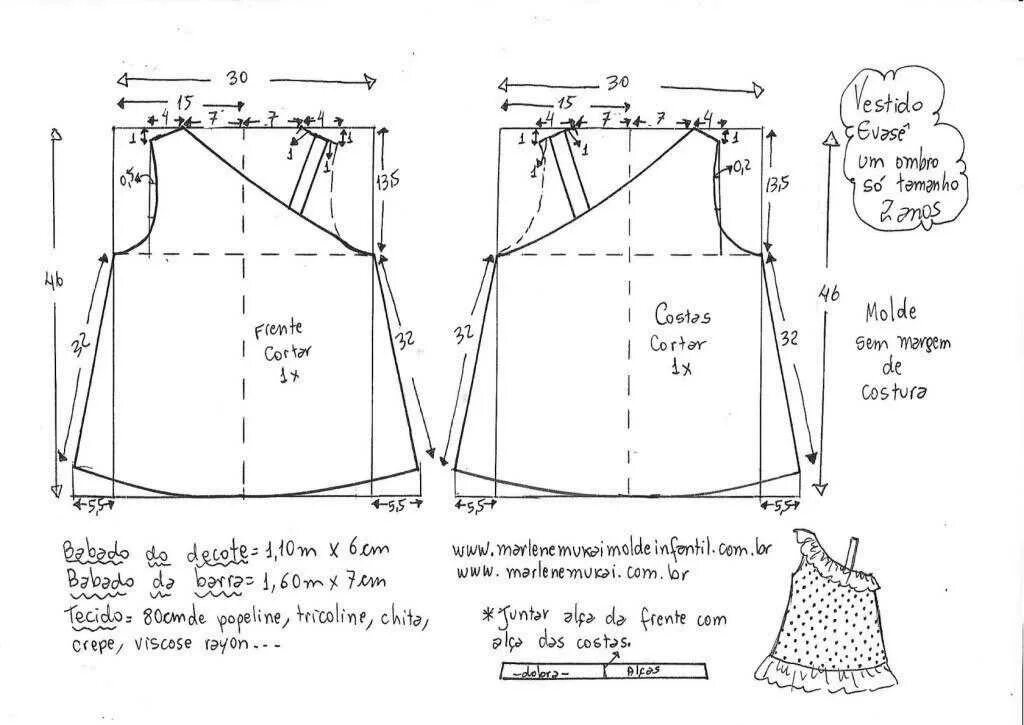 30
15
4 7 7 4
1 1
1 1
0,5
13,5
46
32
32
Frente
Cortar
1x
5,5 5,5
30
15
4 7 7 4
1 1
1 1
0,2
13,5
46
32
32
Costas
Cortar
1x
5,5 5,5
Vestido
Evasê
um ombro
só tamanho
2 anos
Molde
sem margem
de
costura
Babado do decote = 1,10m x 6cm
Babado da barra = 1,60m x 7cm
Tecido = 80cm de popeline, tricoline, chita,
crepe, viscose rayon---
www.marlenemukaimoldeinfantil.com.br
www.marlenemukai.com.br
*Juntar alça da frente com
alça das costas.
-dobra- Alças